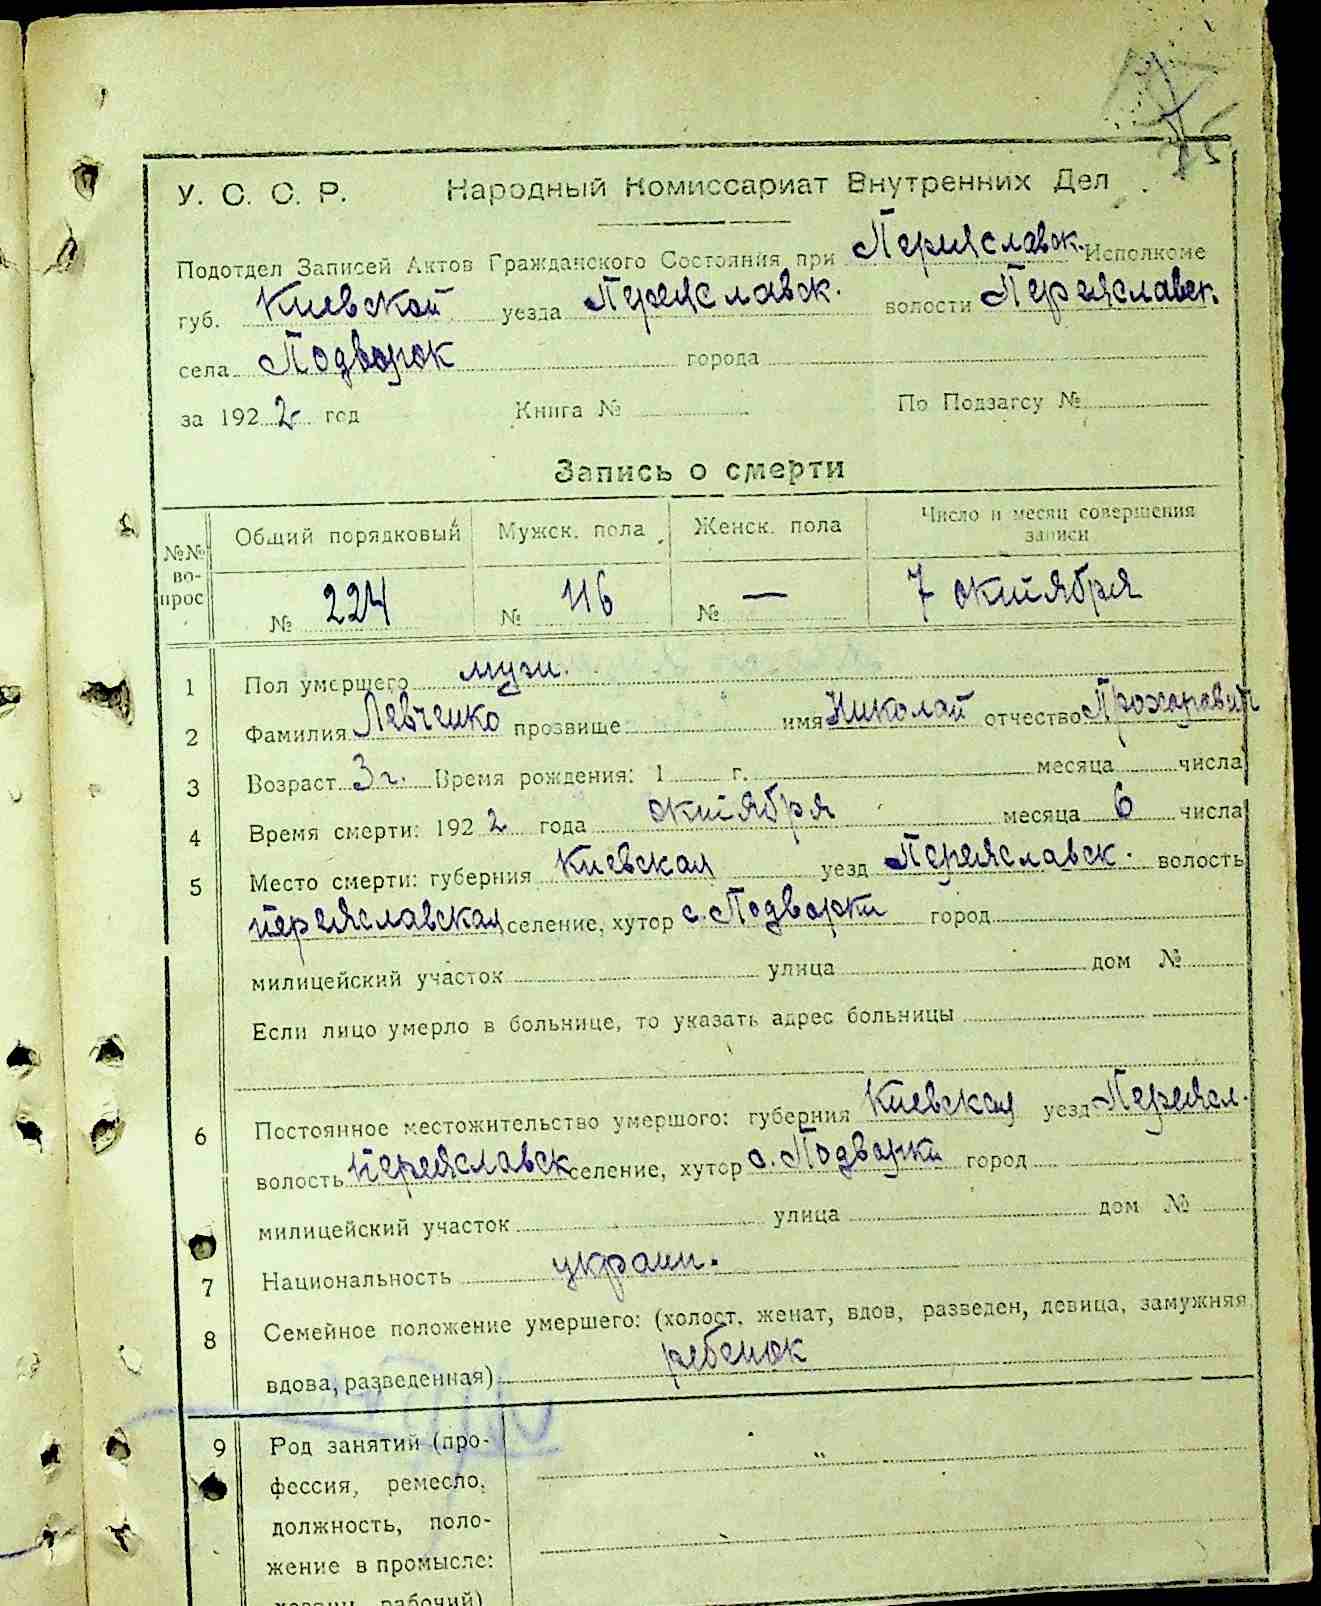 У. С. С. Р. Народный Комиссариат Внутренних Дел
Подотдел Записей Актов Гражданского Состояния при Переяславск. Исполкоме
губ. Киевской уезда Переяславск. волости Переяславск.
села Подворок города
за 1922 год Книга № По Подзагсу №
Запись о смерти
№№ во- прос Общий порядковый Мужск. пола Женск. пола Число и месяц совершения записи
№ 224 № 116 № — 7 октября
1 Пол умершего муж.
2 Фамилия Левченко прозвище имя Николай отчество Прохорович
3 Возраст 3 г. Время рождения: 1 г. месяца числа
4 Время смерти: 1922 года октября месяца 6 числа
5 Место смерти: губерния Киевская уезд Переяславск. волость
Переяславская селение, хутор с. Подворки город
милицейский участок улица дом №
Если лицо умерло в больнице, то указать адрес больницы
6 Постоянное местожительство умершого: губерния Киевская уезд Переясл.
волость Переяславск селение, хутор с. Подворки город
милицейский участок улица дом №
7 Национальность украин.
8 Семейное положение умершего: (холост, женат, вдов, разведен, девица, замужняя
вдова, разведенная) ребенок
9 Род занятий (про-
фессия, ремесло,
должность, поло-
жение в промысле:
хозяин, рабочий)